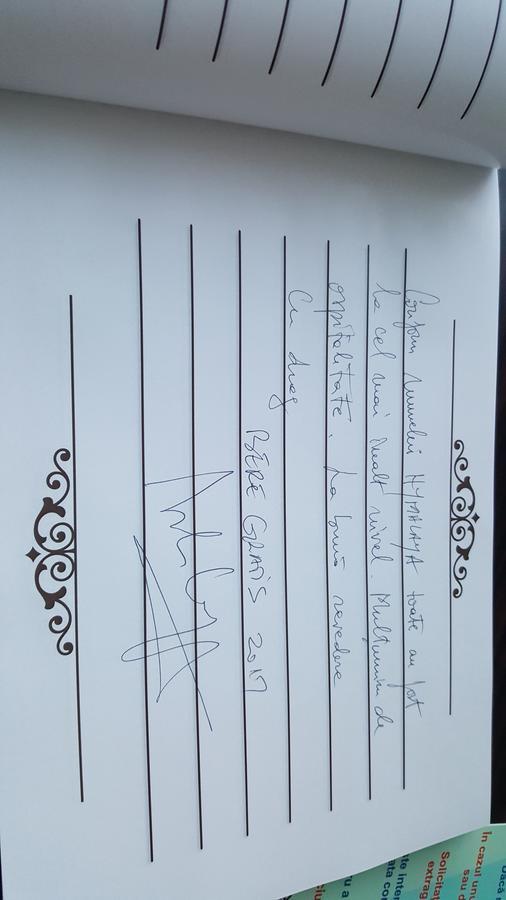 Conform numelui HYMALAYA toate au fost
la cel mai înalt nivel. Mulțumim de
ospitalitate. La bună revedere
Cu drag
BERE GRATIS 2017
In cazul
sau
Solicitat
extrag
te inter
ata co